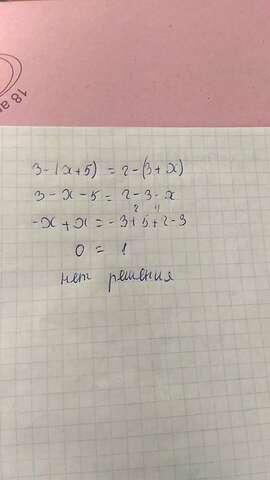 18
3-(x+5) = 2-(3+x)
3-x-5 = 2-3-x
-x+x = -3+5+2-3
2 4
0 = 1
нет решения